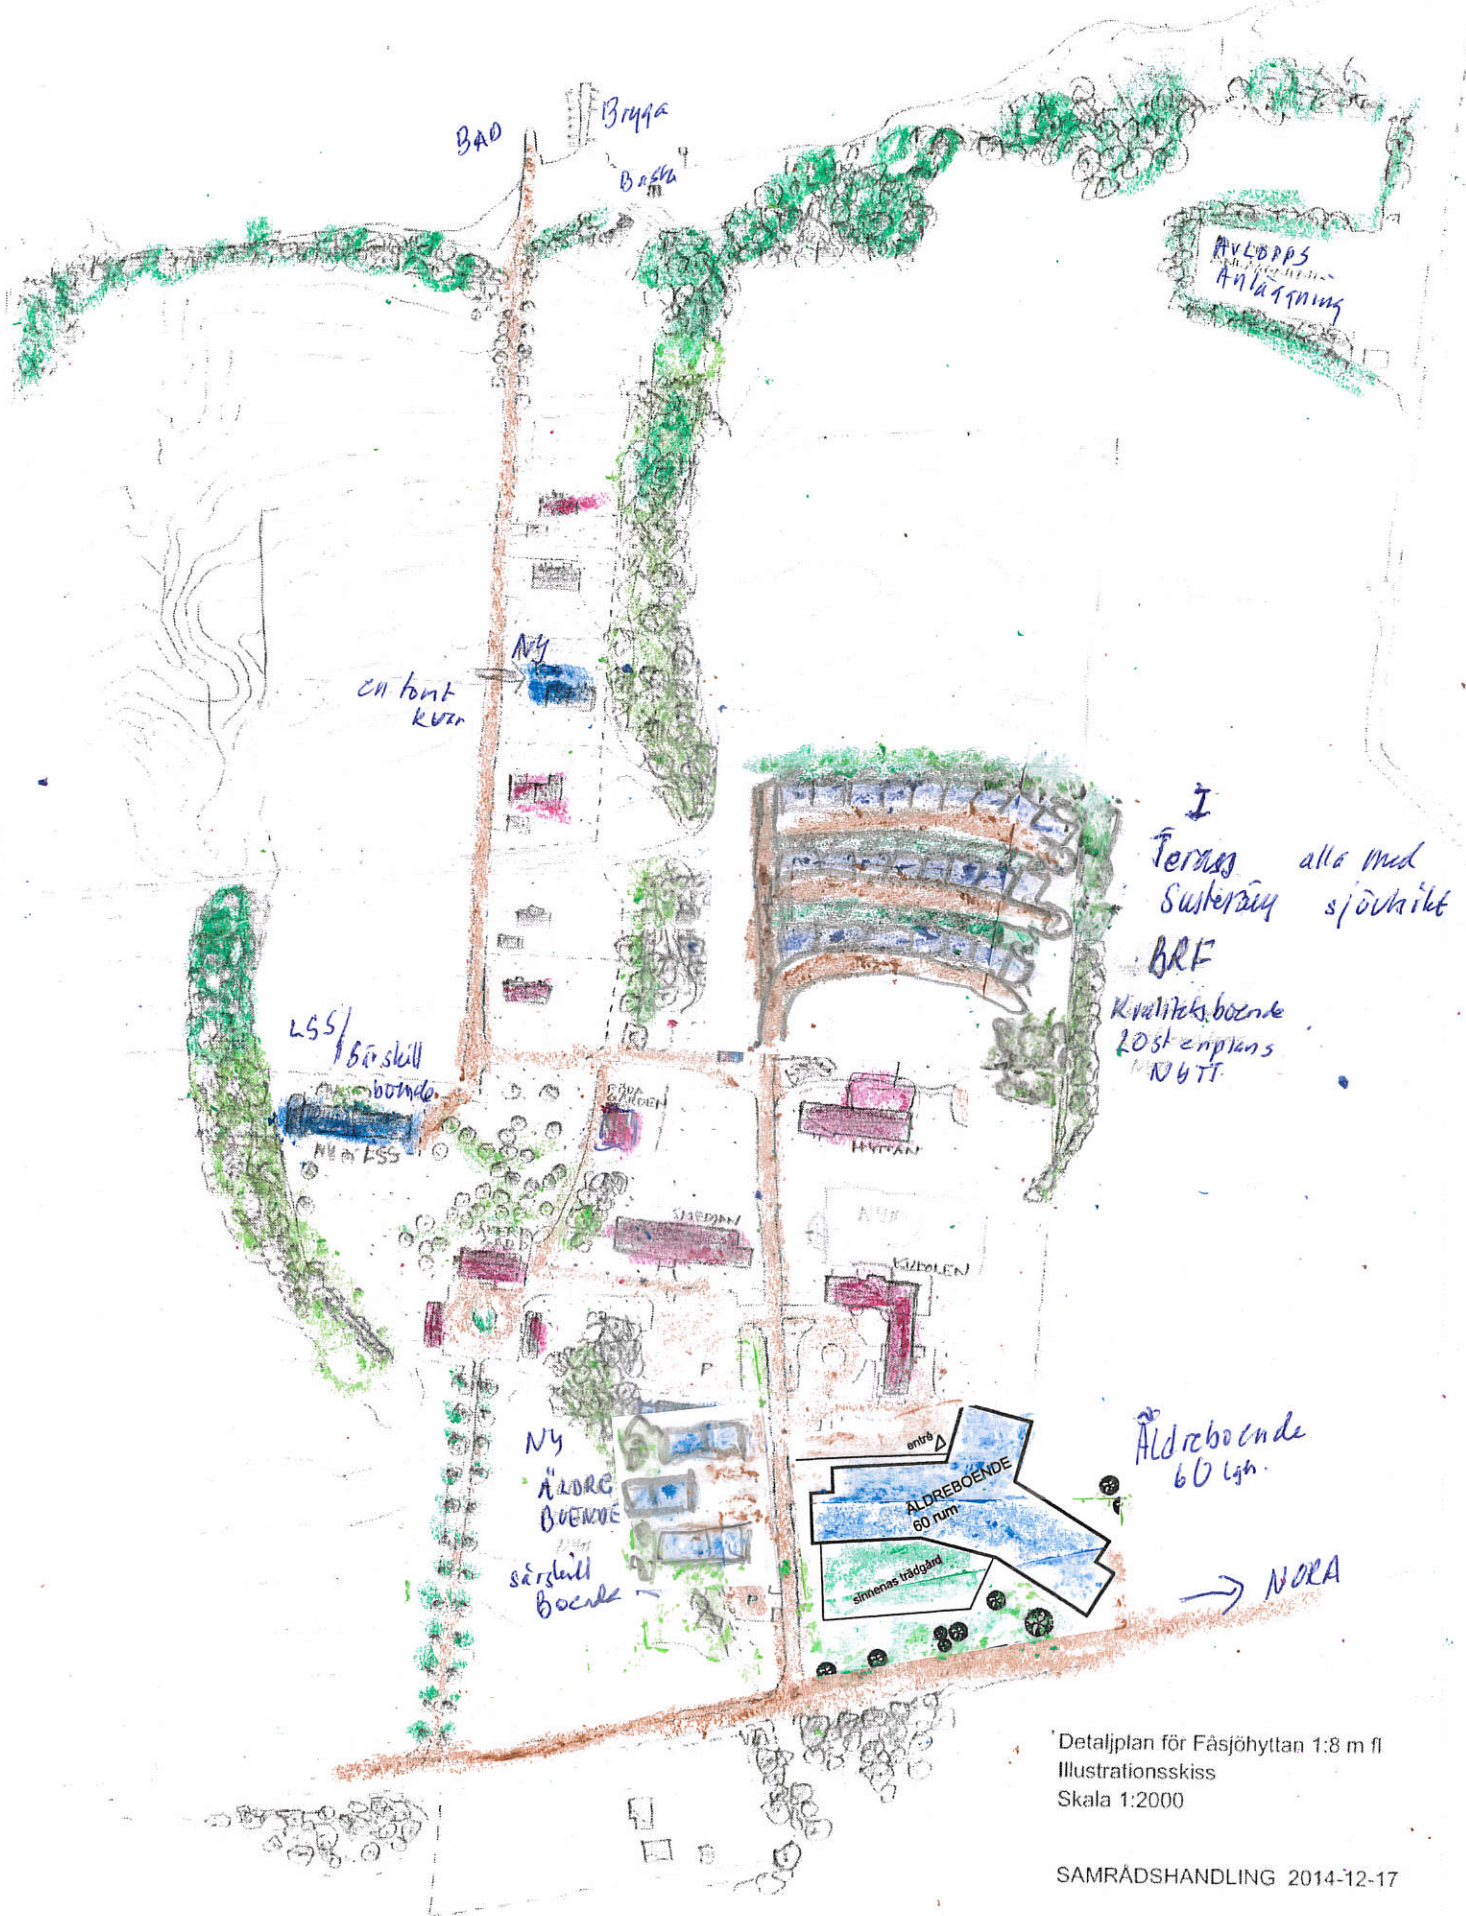 BAD
Bryga
Bastu
AVLOPPS
Anläggning
NY
en tomt
kvar
I
Terass alla med
Suteräng sjöutsikt
BRF
Kvalitetsboende
20st enplans
NYTT
LSS/
Särskill
boende
NY LSS
RÖDA
GÅRDEN
HYTTAN
SMEDJAN
KUPOLEN
P
NY
ÄLDRE
BOENDE
särskill
Boende
P
entré
ÄLDREBOENDE
60 rum
sinnenas trädgård
Äldreboende
60 lgh.
→ NORA
Detaljplan för Fåsjöhyttan 1:8 m fl
Illustrationsskiss
Skala 1:2000
SAMRÅDSHANDLING 2014-12-17